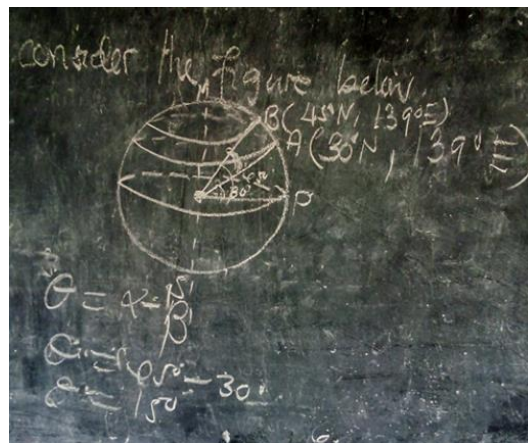 consider the figure below.
B (45°N, 139°E)
A (30°N, 139°E)
30°
P
θ = α - β
θ = 45° - 30°
θ = 15°